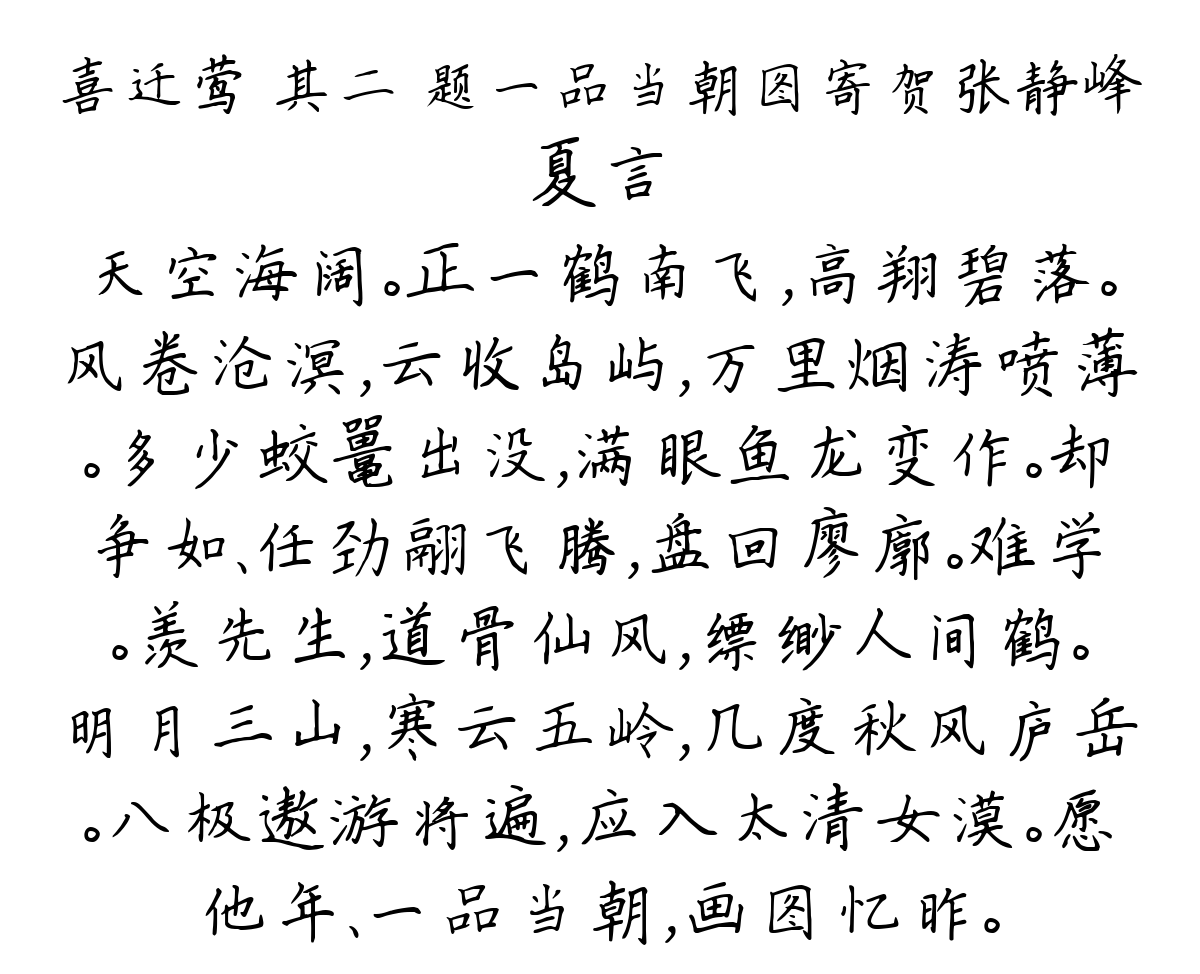 喜迁莺 其二 题一品当朝图寄贺张静峰
夏言
天空海阔。正一鹤南飞,高翔碧落。
风卷沧溟,云收岛屿,万里烟涛喷薄
。多少蛟鼍出没,满眼鱼龙变作。却
争如、任劲翮飞腾,盘回廖廓。难学
。羡先生,道骨仙风,缥缈人间鹤。
明月三山,寒云五岭,几度秋风庐岳
。八极遨游将遍,应入太清女漠。愿
他年、一品当朝,画图忆昨。